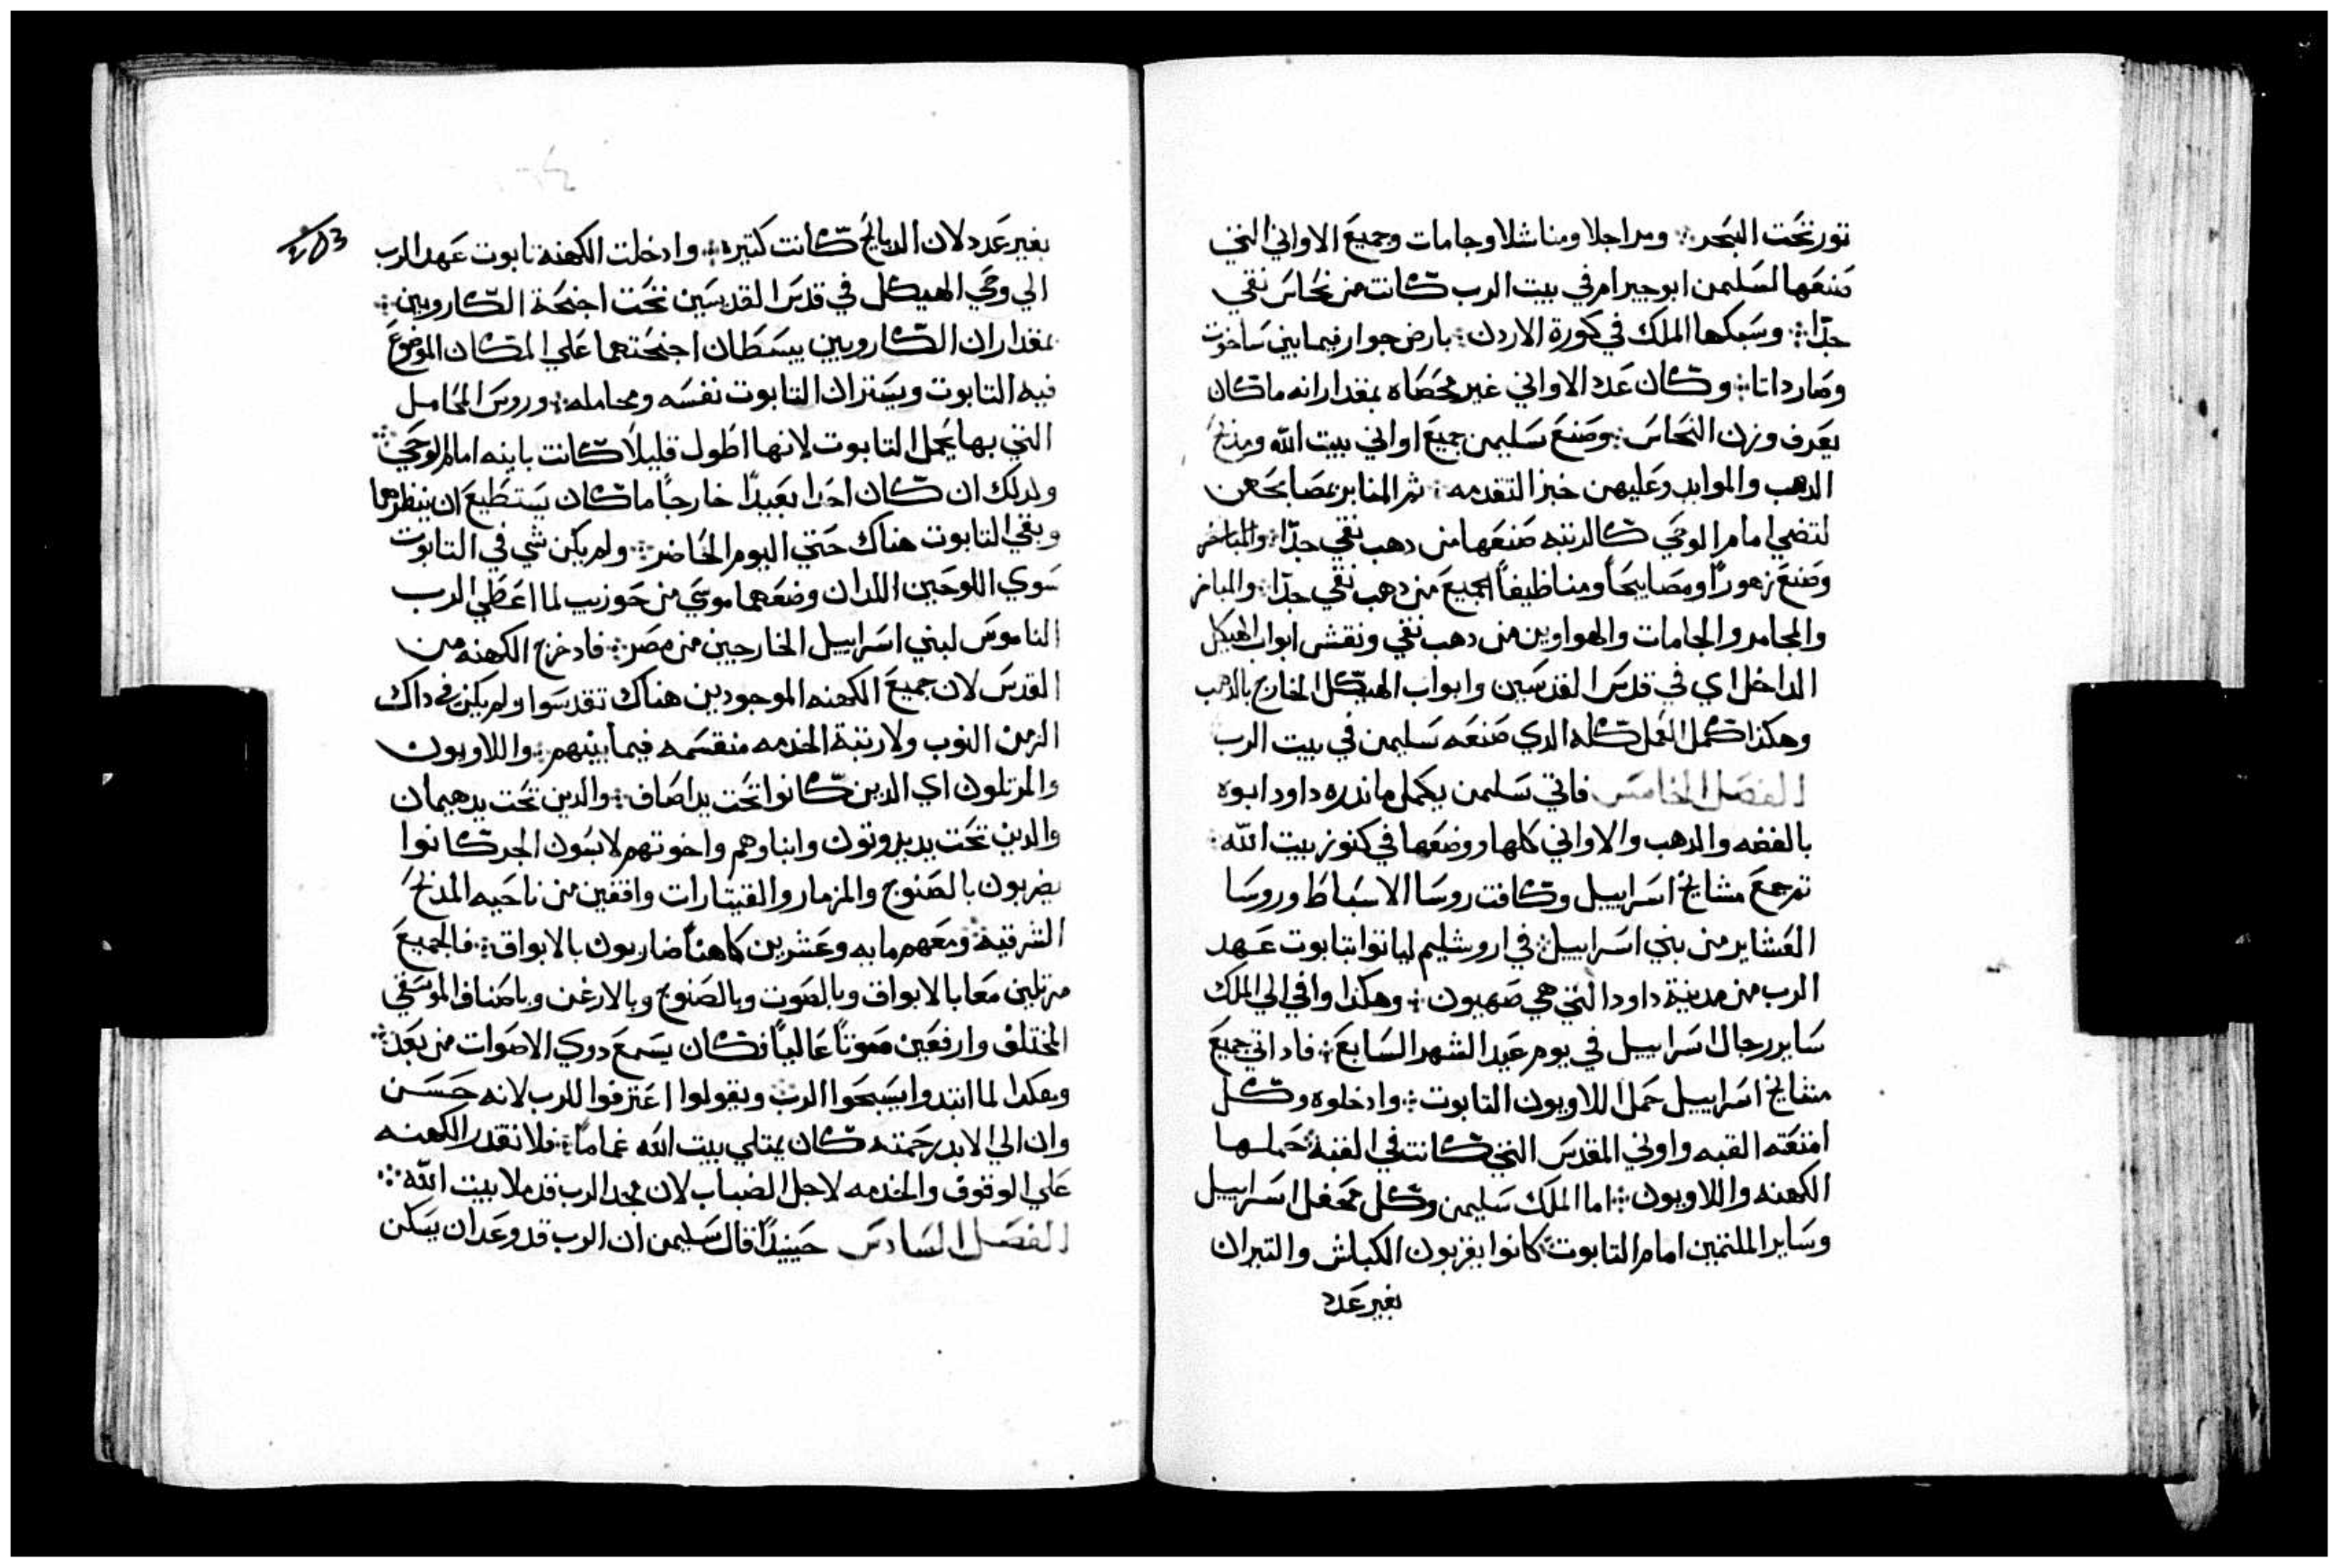 تور تحت البحر ومراجلا ومناشلا وجامات وجميع الاواني التي
صنعها لسليمن ابو حيرام في بيت الرب كانت من نحاس نقي
جدًا وسبكها الملك في كورة الاردن بارض جوار فيما بين ساخوت
وصارداتا وكان عدد الاواني غير محصاه بمقدار انه ماكان
يعرف وزن النحاس وصنع سليمن جميع اواني بيت الله ومذبح
الدهب والموايد وعليهن خبز التقدمه ثم المنابر بمصابحهن
لتضي امام الوحي كالرتبه صنعها من دهب نقي جدًا والمباخر
وصنع زهورًا ومصابيحًا ومناظيفًا الجميع من دهب نقي جدًا والمباخر
والمجامر والجامات والهواوين من دهب نقي ونقش ابواب الهيكل
الداخل اي في قدس القدسين وابواب الهيكل الخارج بالدهب
وهكذا كمل العمل كله الدي صنعه سليمن في بيت الرب
الفصل الخامس فاتي سليمن بكلما نذره داود ابوه
بالفضه والدهب والاواني كلها ووضعها في كنوز بيت الله
تم جمع مشايخ اسراييل وكافت روسا الاسباط وروسا
العشاير من بني اسراييل في اروشليم لياتوا بتابوت عهد
الرب من مدينة داود التي هي صهيون وهكذا وافي الي الملك
ساير رجال اسراييل في يوم عيد الشهر السابع فاد اتي جميع
مشايخ اسراييل حمل اللاويون التابوت وادخلوه وكل
امتعته القبه واوني المقدس التي كانت في القبه حملها
الكهنه واللاويون اما الملك سليمن وكل محفل اسراييل
وساير الملتمين امام التابوت كانوا يقربون الكباش والتيران
بغير عدد
بغير عدد لان الدبايح كانت كتيره وادخلت الكهنة تابوت عهد الرب
203
الي وحي الهيكل في قدس القدسين تحت اجنحة الكاروبين
بمقدار ان الكاروبين يبسطان اجنحتهما علي المكان الموضوع
فيه التابوت ويستران التابوت نفسه ومحامله وروس المحامل
التي بها يحمل التابوت لانها اطول قليلًا كانت باينه امام الوحي
ولدلك ان كان احدًا بعيدًا خارجًا ما كان يستطيع ان ينظرها
وبقي التابوت هناك حتي اليوم الحاضر ولم يكن شي في التابوت
سوي اللوحين اللدان وضعهما موسي من حوزيب لما اعطي الرب
الناموس لبني اسراييل الخارجين من مصر فاد خرج الكهنه من
القدس لان جميع الكهنه الموجودين هناك تقدسوا ولم يكن في داك
الزمن النوب ولا رتبة الخدمه منقسمه فيما بينهم واللاويون
والمرتلون اي الدين كانوا تحت يد اصاف والدين تحت يد هيمان
والدين تحت يد يدوتون وابناوهم واخوتهم لابسون الجد كانوا
يضربون بالصنوج والمزمار والقيتارات واقفين من ناحيه المذبح
الشرقيه ومعهم مايه وعشرين كاهنًا ضاربون بالابواق فالجميع
مرتلين معا بالابواق وبالصوت وبالصنوج وبالارغن وباصناف الموسقي
المختلف وارفعين صوتًا عاليًا فكان يسمع دوي الاصوات من بعد
وهكدا لما ابتدوا يسبحوا الرب ويقولوا اعترفوا للرب لانه حسن
وان الي الابد رحمته كان يمتلي بيت الله غمامًا فلا تقدر الكهنه
علي الوقوف والخدمه لاجل الضباب لان مجد الرب قد ملا بيت الله
الفصل السادس حينيدًا قال سليمن ان الرب قد وعد ان يسكن